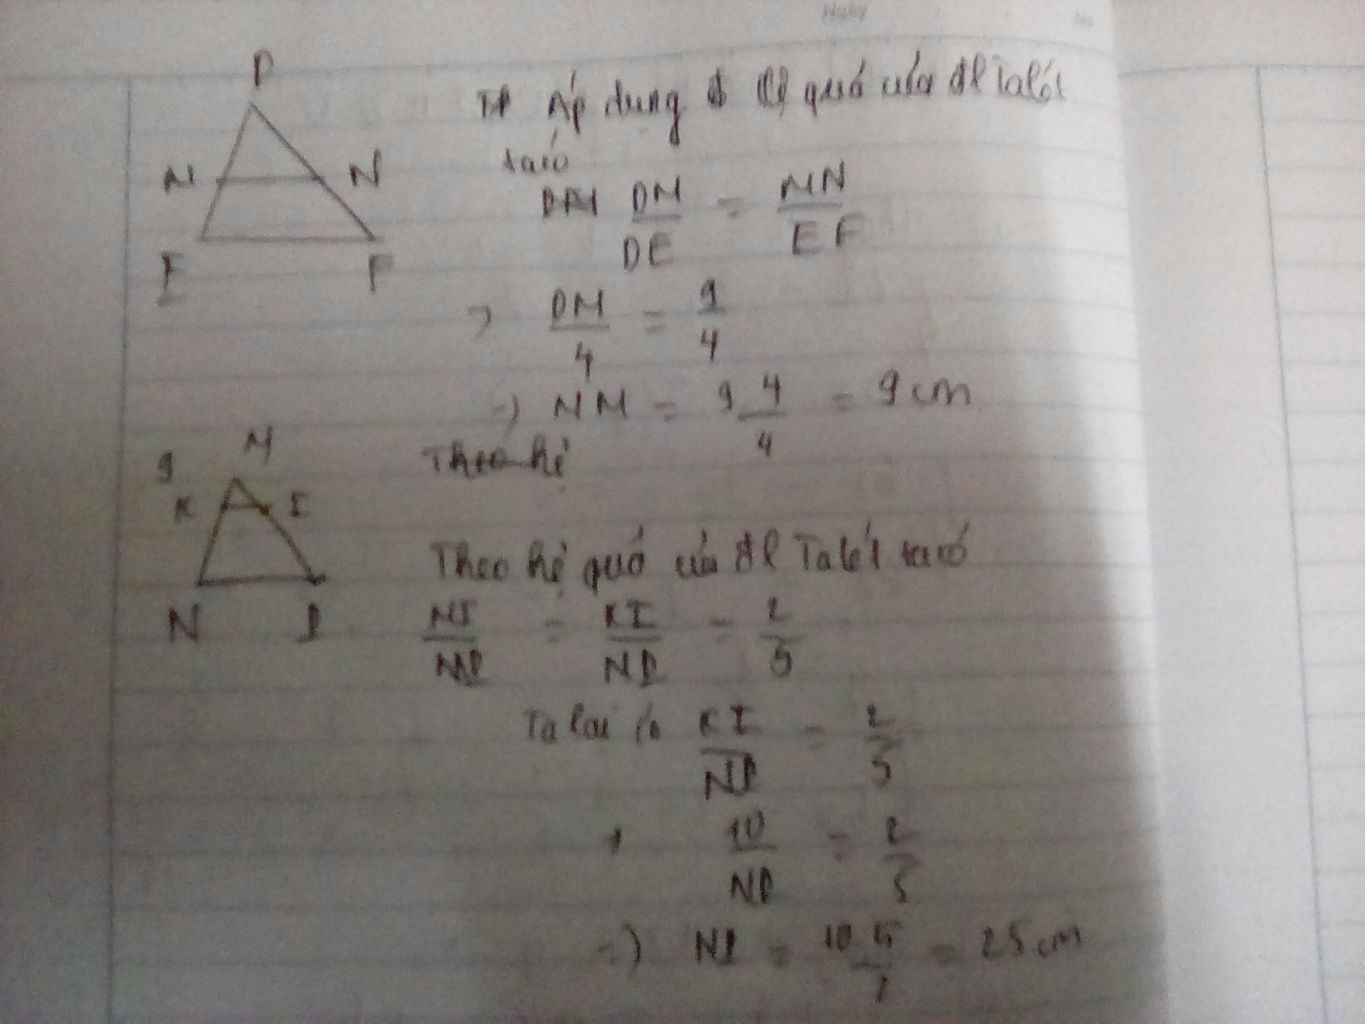 Ngày
No
D
Áp dụng hệ quả của đl Talét
ta có
M N
DM DM/DE = MN/EF
E F
=> DM/4 = 9/4
=> NM = 9.4/4 = 9 cm
9 M
Theo hệ
K I
Theo hệ quả của đl Talét ta có
N P
MI/MP = KI/NP = 2/5
Ta lại có KI/NP = 2/5
10/NP = 2/5
=> NP = 10.5/2 = 25 cm